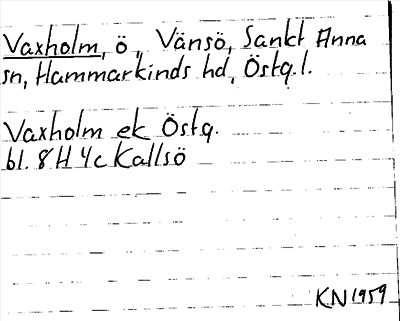 Vaxholm, ö, Vänsö, Sankt Anna
sn, Hammarkinds hd, Östg.l.
Vaxholm ek Östg.
bl. 8H 4c Kallsö
KN 1959